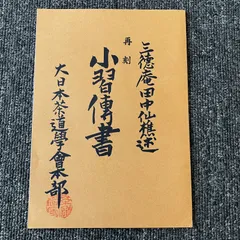 三徳庵田中仙樵述
再刻
小習傳書
大日本茶道學會本部